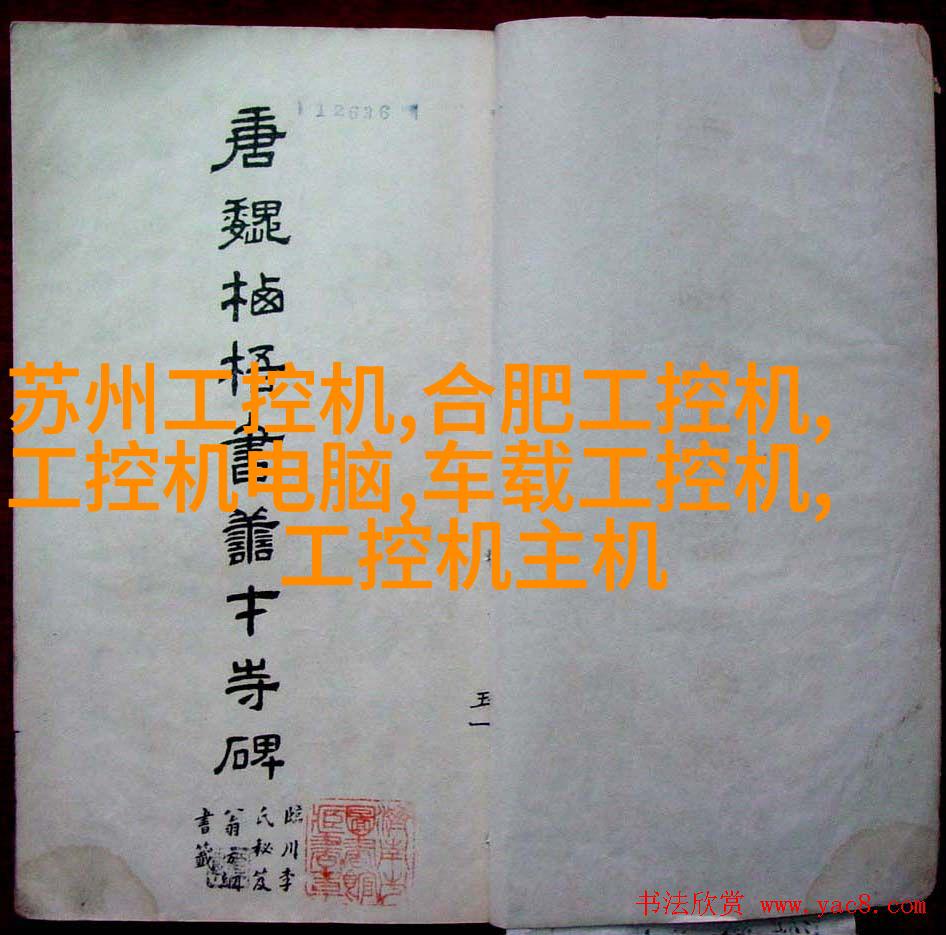 12636
唐魏栖梧書善才寺碑
臨川李
氏秘笈
翁方綱
書籤
濟南市
圖書館
藏書章
苏州工控机,合肥工控机,
工控机电脑,车载工控机,
工控机主机
书法欣赏 www.yac8.com